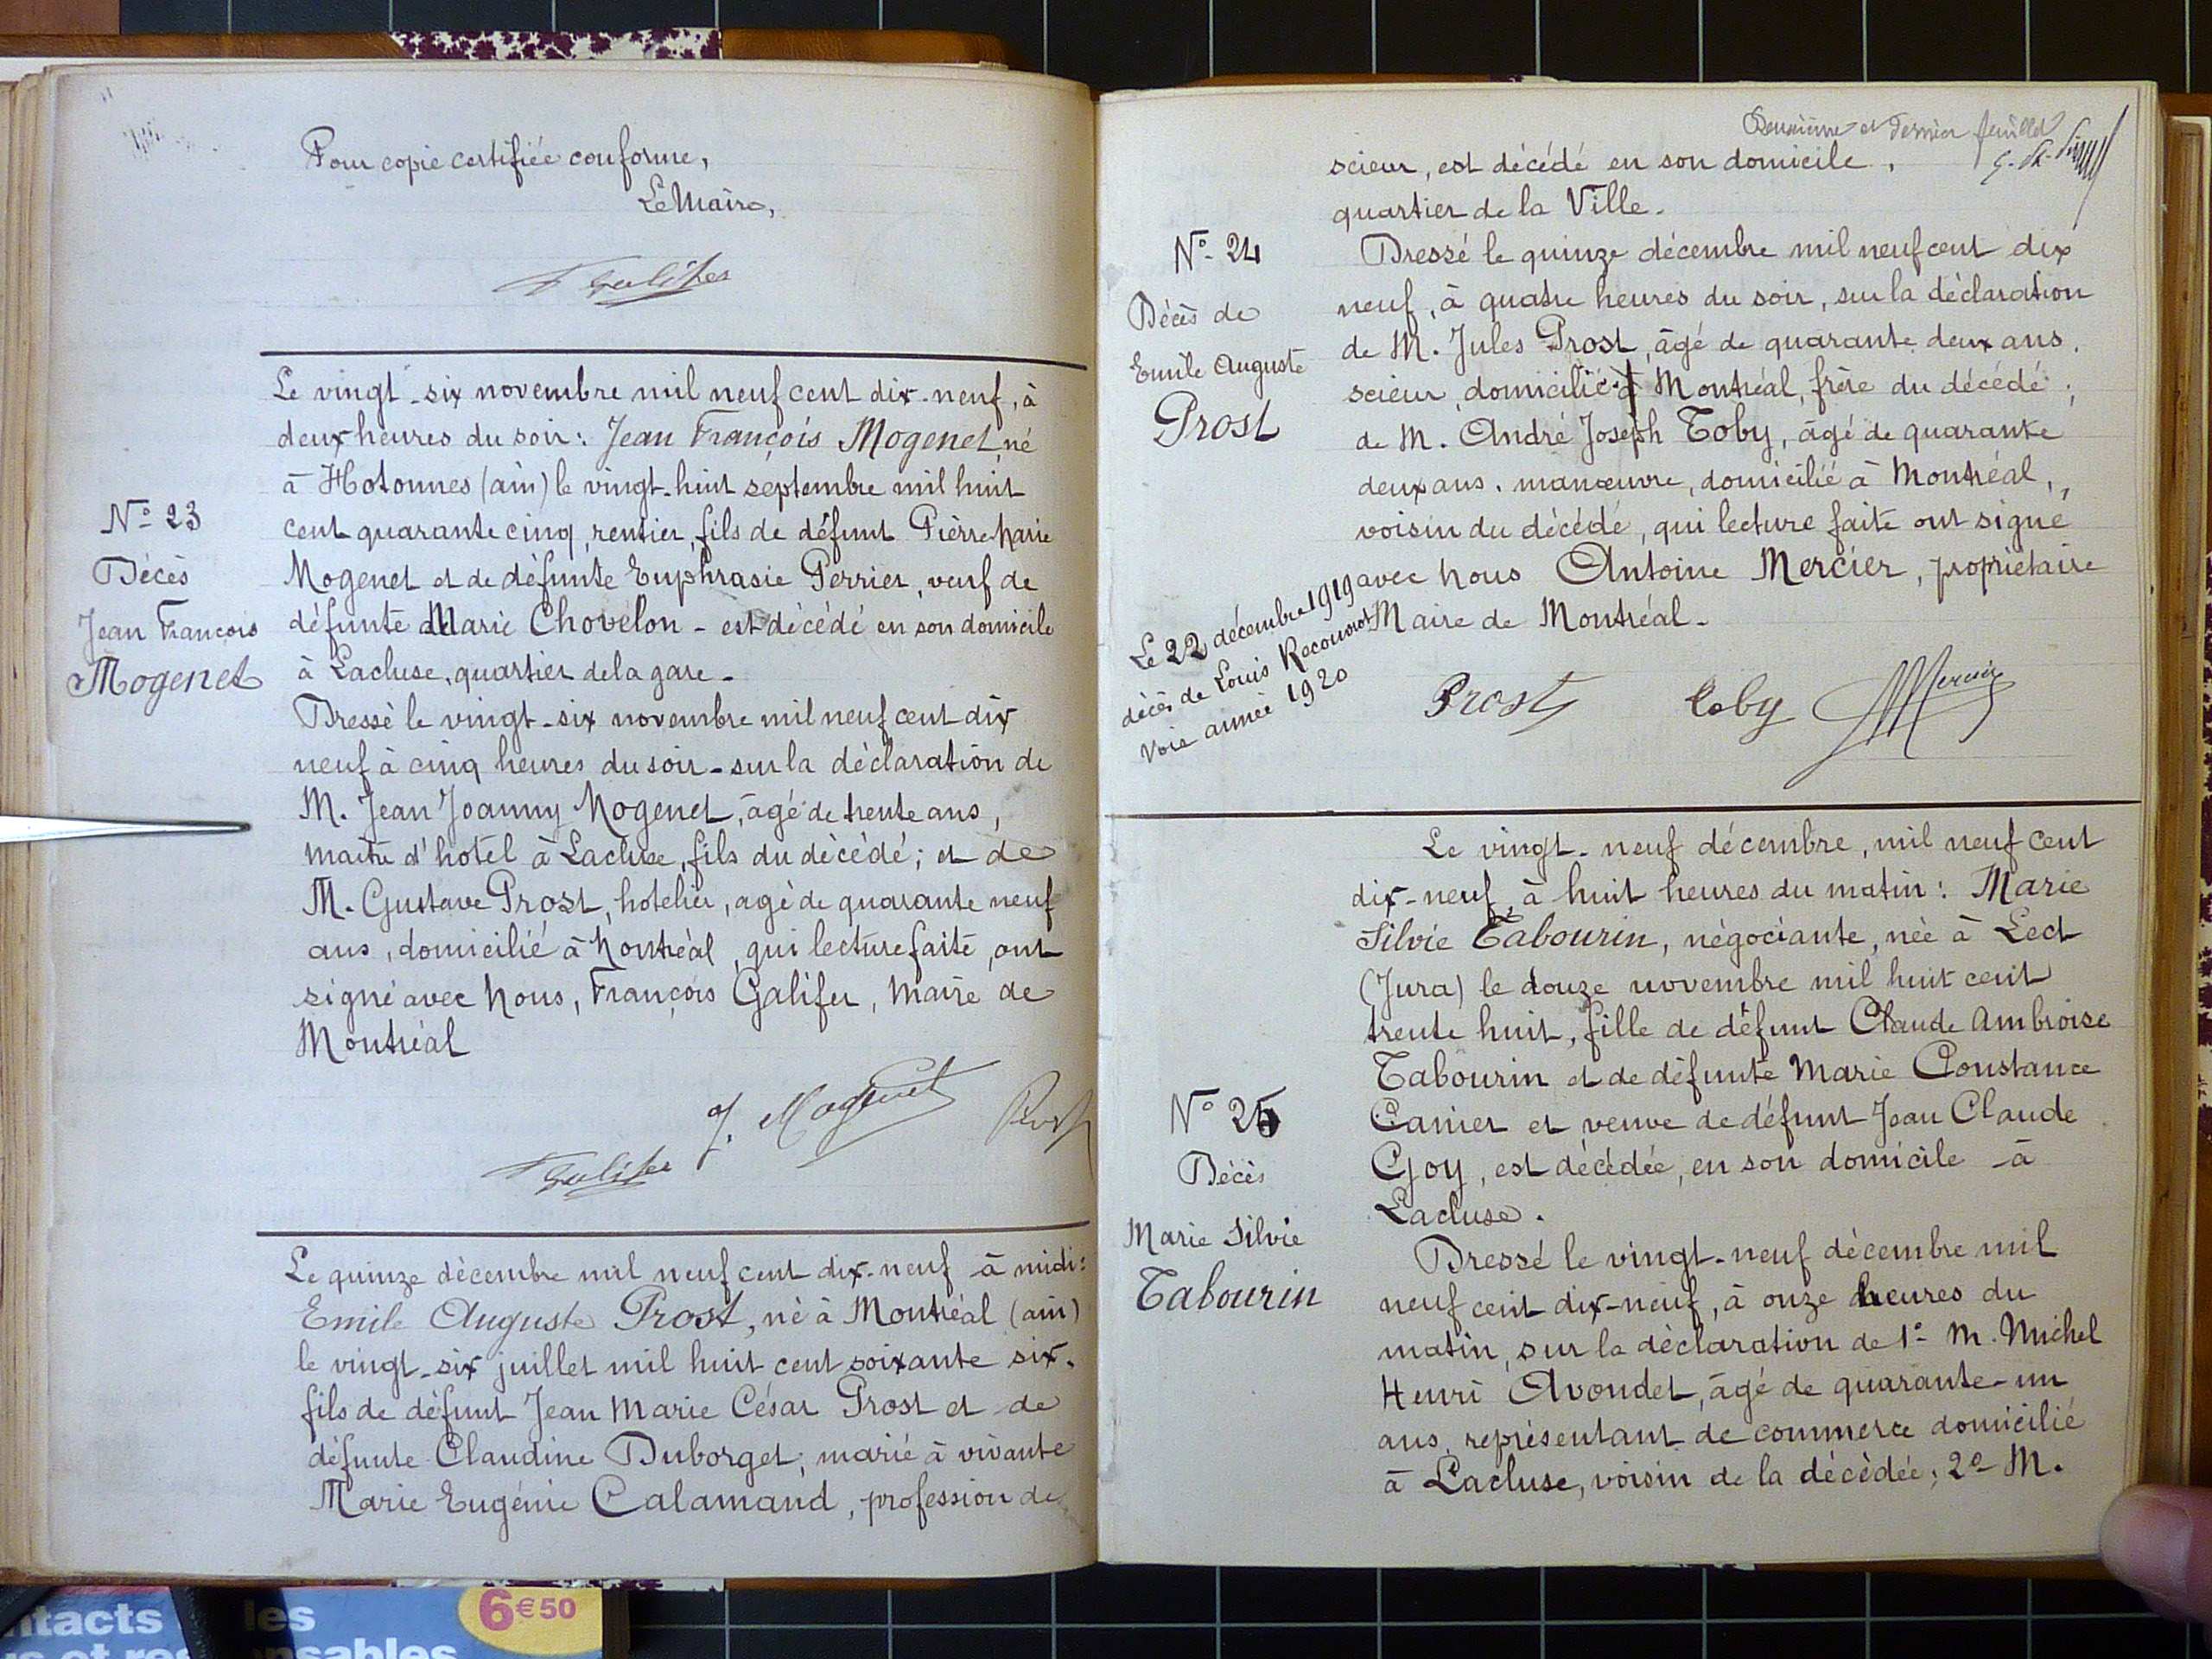 Pour copie certifiée conforme,
Le Maire,
Le vingt-six novembre mil neuf cent dix-neuf, à
deux heures du soir : Jean François Mogenet, né
à Hotonnes (ain) le vingt-huit septembre mil huit
cent quarante cinq, rentier, fils de défunt Pierre Marie
N° 23
Décès
Jean François
Mogenet
Mogenet et de défunte Euphrasie Perrier, veuf de
défunte Marie Chovelon - est décédé en son domicile
à Lacluse, quartier de la gare -
Dressé le vingt-six novembre mil neuf cent dix
neuf à cinq heures du soir - sur la déclaration de
M. Jean Joanny Mogenet, âgé de trente ans,
maitre d'hotel à Lacluse, fils du décédé; et de
M. Gustave Prost, hotelier, agé de quarante neuf
ans, domicilié à Montréal, qui lecture faite, ont
signé avec Nous, François Galifer, Maire de
Montréal
J. Mogenet
Prost
Le quinze décembre mil neuf cent dix-neuf à midi :
Emile Auguste Prost, né à Montréal (ain)
le vingt-six juillet mil huit cent soixante six,
fils de défunt Jean Marie César Prost et de
défunte Claudine Duborget; marié à vivante
Marie Eugénie Calamand, profession de
Deuxième et dernier feuillet
scieur, est décédé en son domicile,
quartier de la Ville.
N° 24
Décès de
Emile Auguste
Prost
Dressé le quinze décembre mil neuf cent dix
neuf, à quatre heures du soir, sur la déclaration
de M. Jules Prost, âgé de quarante deux ans,
scieur, domicilié à Montréal, frère du décédé;
de M. André Joseph Toby, âgé de quarante
deux ans, manœuvre, domicilié à Montréal,
voisin du décédé, qui lecture faite ont signé
avec Nous Antoine Mercier, propriétaire
Maire de Montréal.
Le 22 décembre 1919
décès de Louis
Voir année 1920
Prost Toby Mercier
Le vingt-neuf décembre, mil neuf cent
dix-neuf, à huit heures du matin : Marie
Silvie Tabourin, négociante, née à Lect
(Jura) le douze novembre mil huit cent
trente huit, fille de défunt Claude Ambroise
Tabourin et de défunte Marie Constance
N° 25
Décès
Marie Silvie
Tabourin
Canier et veuve de défunt Jean Claude
Goy, est décédée, en son domicile à
Lacluse.
Dressé le vingt-neuf décembre mil
neuf cent dix-neuf, à onze heures du
matin, sur la déclaration de 1° M. Michel
Henri Avondet, âgé de quarante-un
ans, représentant de commerce domicilié
à Lacluse, voisin de la décédée; 2° M.
ntacts
les
6€50
nsables